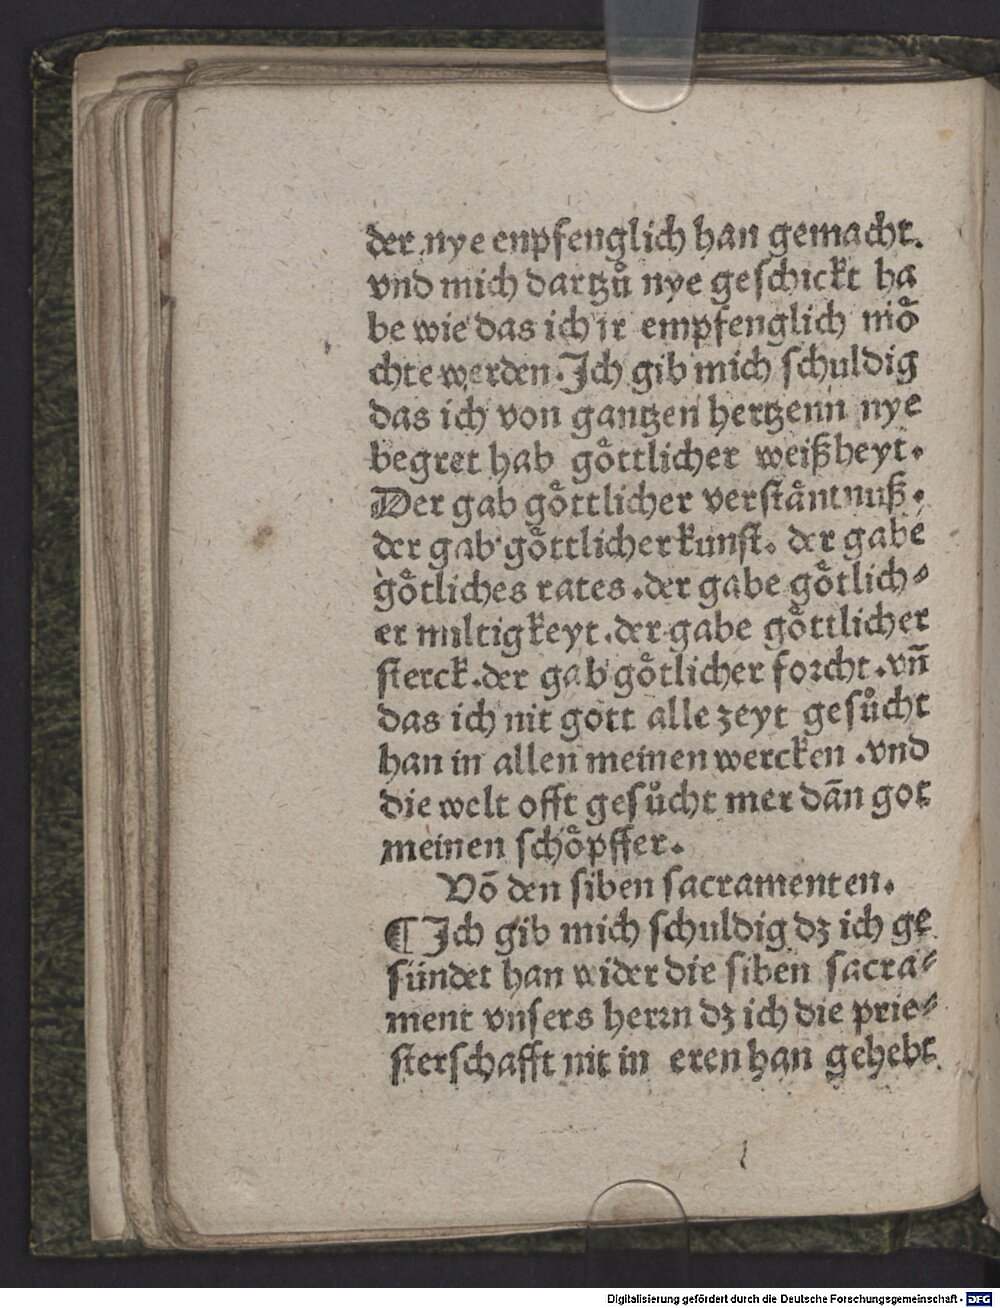 der nye enpfenglich han gemacht.
vnd mich dartzů nye geschickt ha
be wie das ich ir empfenglich moͤ
chte werden. Ich gib mich schuldig
das ich von gantzen hertzenn nye
begret hab goͤttlicher weißheyt.
Der gab goͤttlicher verstaͤntnuß.
der gab goͤttlicher kunst. der gabe
goͤtliches rates. der gabe goͤtlich⸗
er miltigkeyt. der gabe goͤttlicher
sterck. der gab goͤtlicher forcht. vñ
das ich nit gott alle zeyt gesůcht
han in allen meinen wercken. vnd
die welt offt gesůcht mer dañ got
meinen schoͤpffer.
Võ den siben sacramenten.
¶ Ich gib mich schuldig dz ich ge
sündet han wider die siben sacra⸗
ment vnsers herrn dz ich die prie⸗
sterschafft nit in eren han gehebt
Digitalisierung gefördert durch die Deutsche Forschungsgemeinschaft - DFG